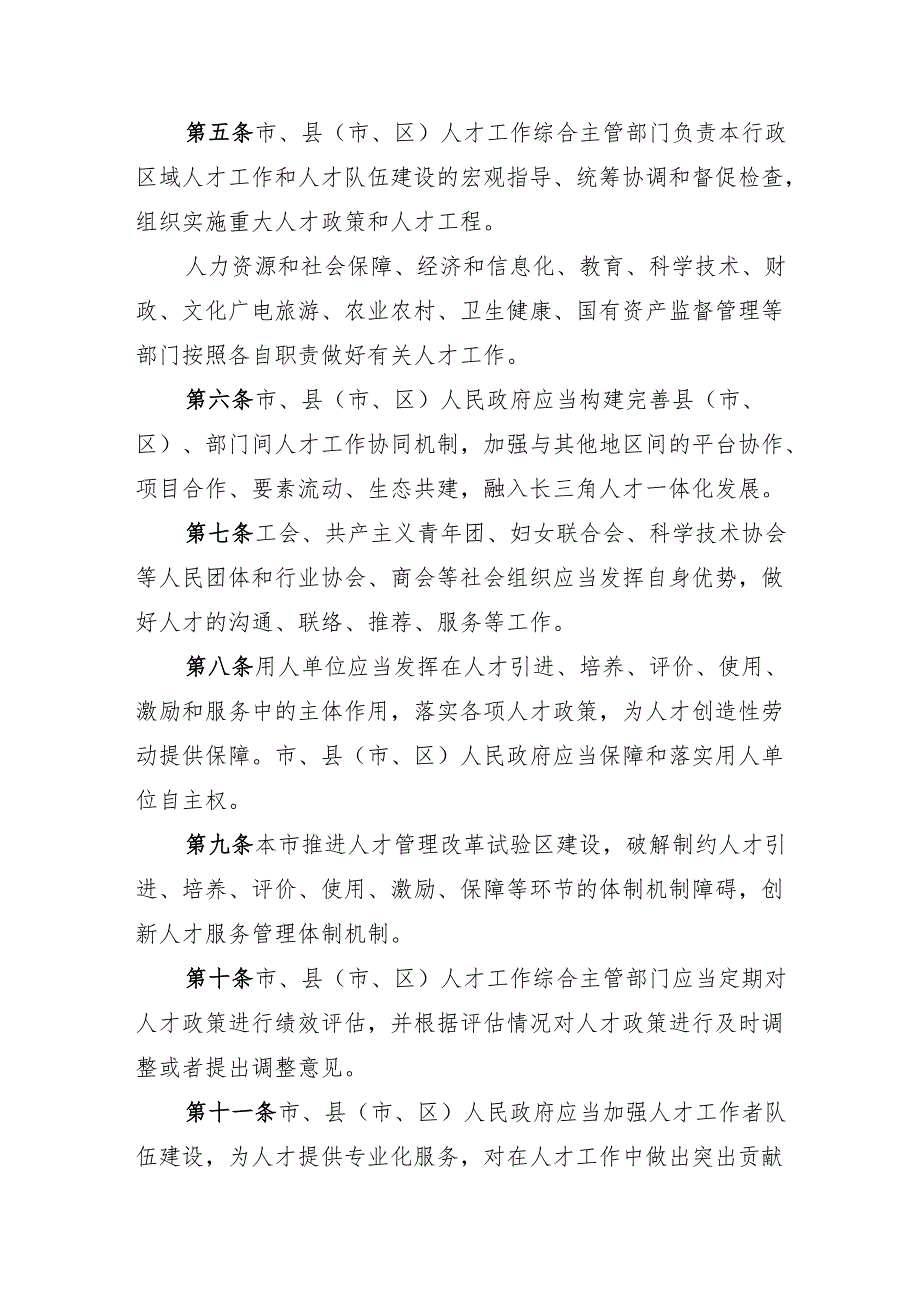 第五条市、县（市、区）人才工作综合主管部门负责本行政
区域人才工作和人才队伍建设的宏观指导、统筹协调和督促检查，
组织实施重大人才政策和人才工程。
人力资源和社会保障、经济和信息化、教育、科学技术、财
政、文化广电旅游、农业农村、卫生健康、国有资产监督管理等
部门按照各自职责做好有关人才工作。
第六条市、县（市、区）人民政府应当构建完善县（市、
区）、部门间人才工作协同机制，加强与其他地区间的平台协作、
项目合作、要素流动、生态共建，融入长三角人才一体化发展。
第七条工会、共产主义青年团、妇女联合会、科学技术协会
等人民团体和行业协会、商会等社会组织应当发挥自身优势，做
好人才的沟通、联络、推荐、服务等工作。
第八条用人单位应当发挥在人才引进、培养、评价、使用、
激励和服务中的主体作用，落实各项人才政策，为人才创造性劳
动提供保障。市、县（市、区）人民政府应当保障和落实用人单
位自主权。
第九条本市推进人才管理改革试验区建设，破解制约人才引
进、培养、评价、使用、激励、保障等环节的体制机制障碍，创
新人才服务管理体制机制。
第十条市、县（市、区）人才工作综合主管部门应当定期对
人才政策进行绩效评估，并根据评估情况对人才政策进行及时调
整或者提出调整意见。
第十一条市、县（市、区）人民政府应当加强人才工作者队
伍建设，为人才提供专业化服务，对在人才工作中做出突出贡献